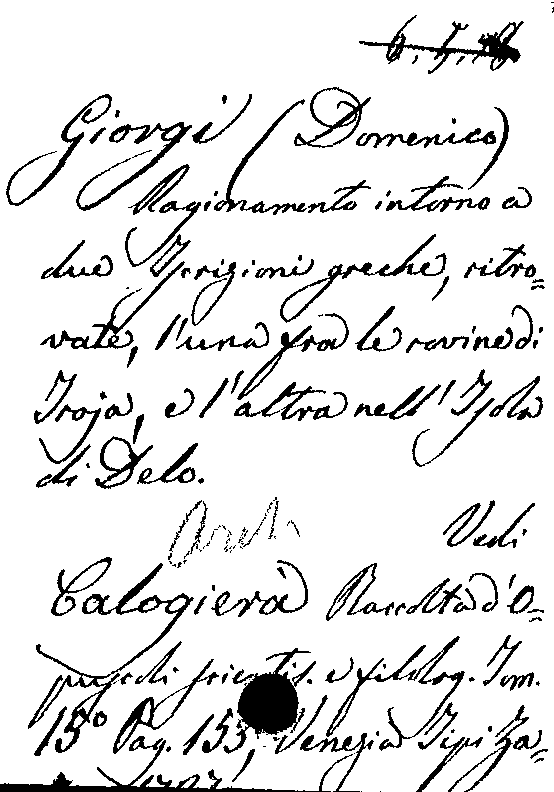 Giorgi (Domenico)
Ragionamento intorno a
due Iscrizioni greche, ritro=
vate, l'una fra le rovine di
Troja, e l'altra nell'Isola
di Delo.
Arch.
Vedi
Calogierà Raccolta d'O=
puscoli scientif. e filolog. Tom.
15º Pag. 153, Venezia Tipi Za=